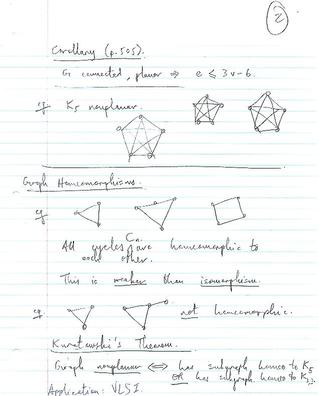 2
Corollary (p. 505).
G connected, planar ⇒ e ≤ 3v-6.
eg K5 nonplanar.
Graph Homeomorphisms.
eg
All cycles Cn are homeomorphic to
each other.
This is weaker than isomorphism.
eg not homeomorphic.
Kuratowski's Theorem.
Graph nonplanar ⇔ has subgraph homeo to K5
OR has subgraph homeo to K3,3.
Application: VLSI.